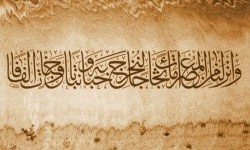 وأنزلنا من المعصرات ماء ثجاجا لنخرج به حبا ونباتا وجنات ألفافا